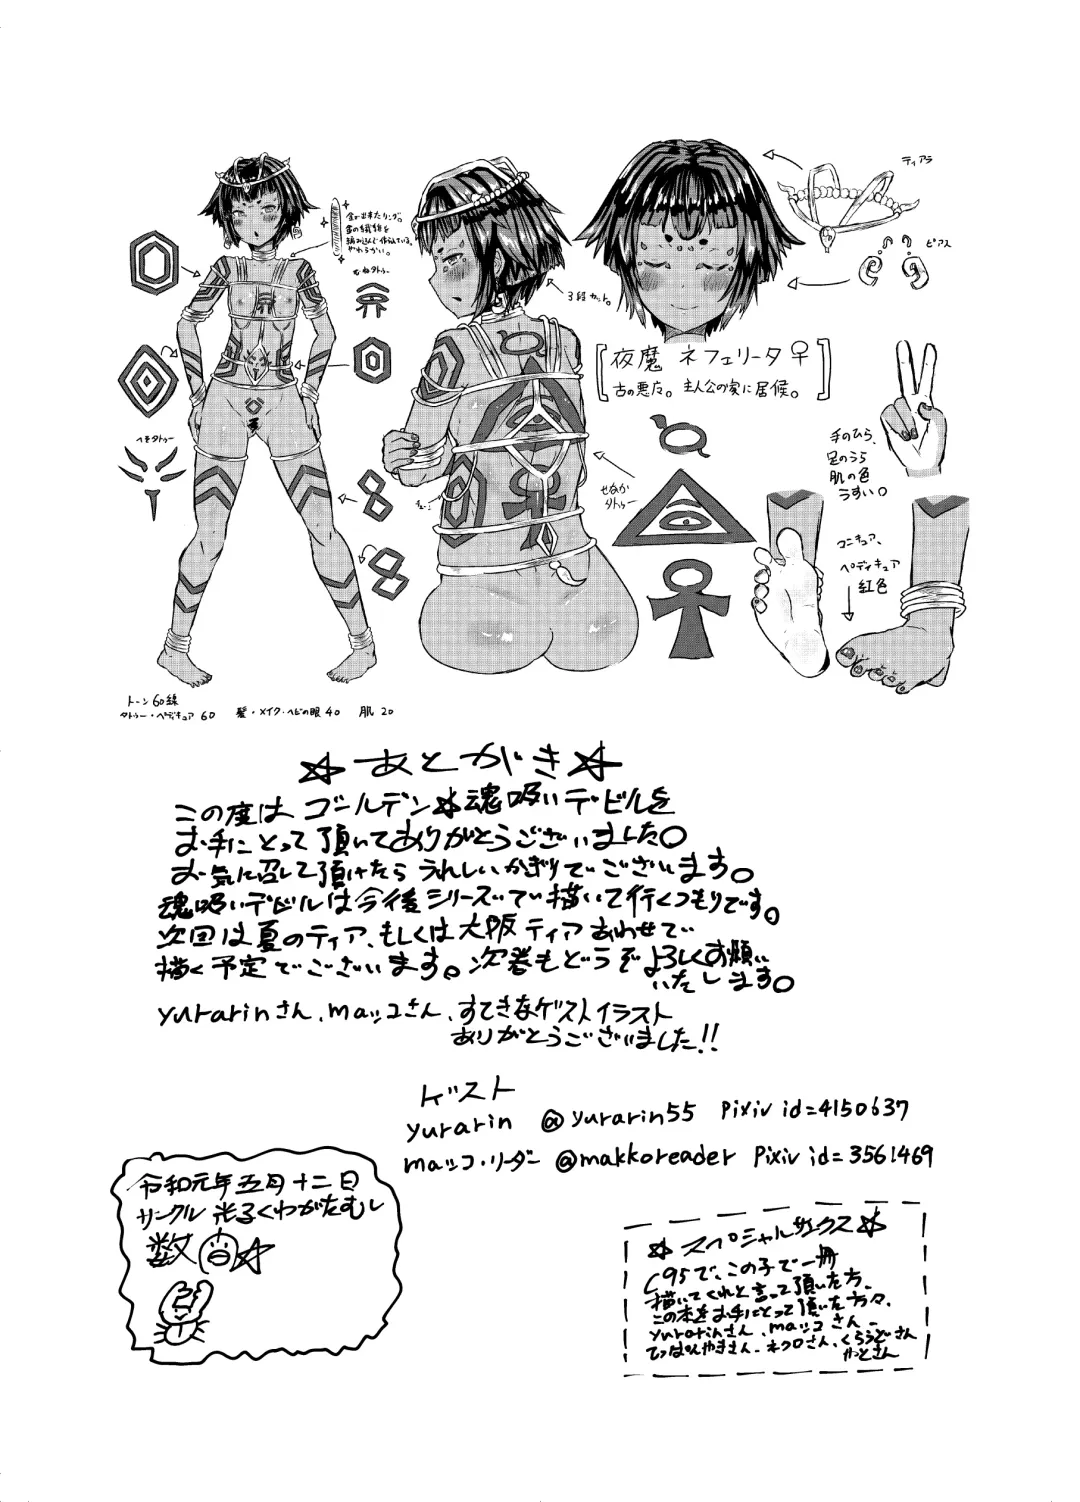 ティアラ
ピアス
金で出来たリング。
やわらかい。
むねタトゥー
3段カット。
[夜魔 ネフェリータ♀
古の悪魔。主人公の家に居候。]
へそタトゥー
せなか
タトゥー
手のひら、
足のうら
肌の色
うすい。
マニキュア、
ペディキュア
紅色
トーン60線
タトゥー・ペディキュア 60 髪・メイク・ヘビの眼 40 肌 20
☆あとがき☆
この度は ゴールデン☆魂吸いデビルを
お手にとって頂いてありがとうございました。
お気に召して頂けたら うれしいかぎりでございます。
魂吸いデビルは今後シリーズで描いて行くつもりです。
次回は夏のティア、もしくは大阪ティアあわせで
描く予定でございます。次巻もどうぞよろしくお願い
いたします。
yurarinさん、maッコさん、すてきなゲストイラスト
ありがとうございました!!
ゲスト
yurarin @yurarin55 Pixiv id=4150637
maッコ・リーダー @makkoreader Pixiv id=3561469
令和元年五月十二日
サークル 光子くわがたむし
数
☆スペシャルサンクス☆
C95で、この子で一冊
描いてくれと言って頂いた方、
この本をお手にとって頂いた方々、
yurarinさん、maッコさん、
てっぱんやきさん、ネクロさん、くらうどさん
やっとさん